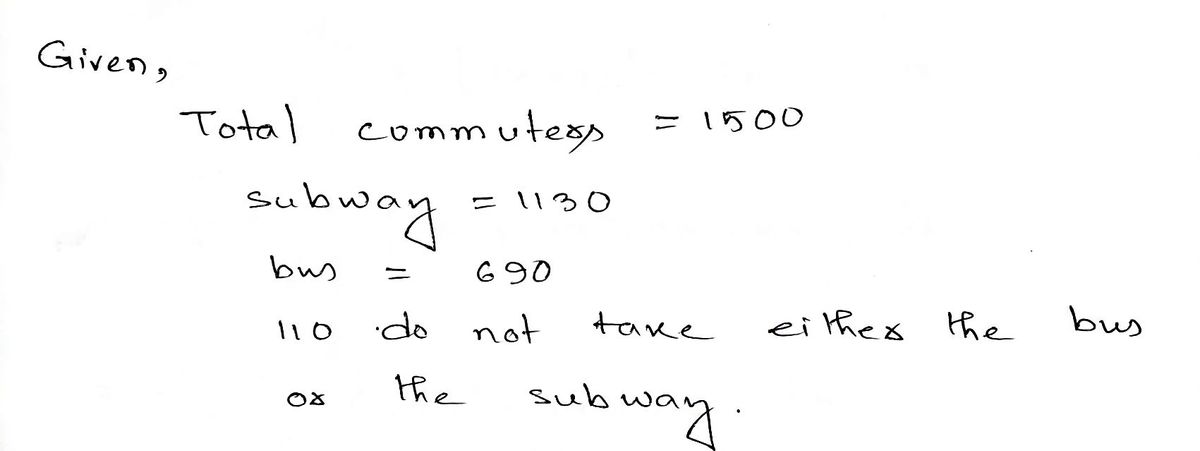 Given,
Total commuters = 1500
subway = 1130
bus = 690
110 do not take either the bus
or the subway.